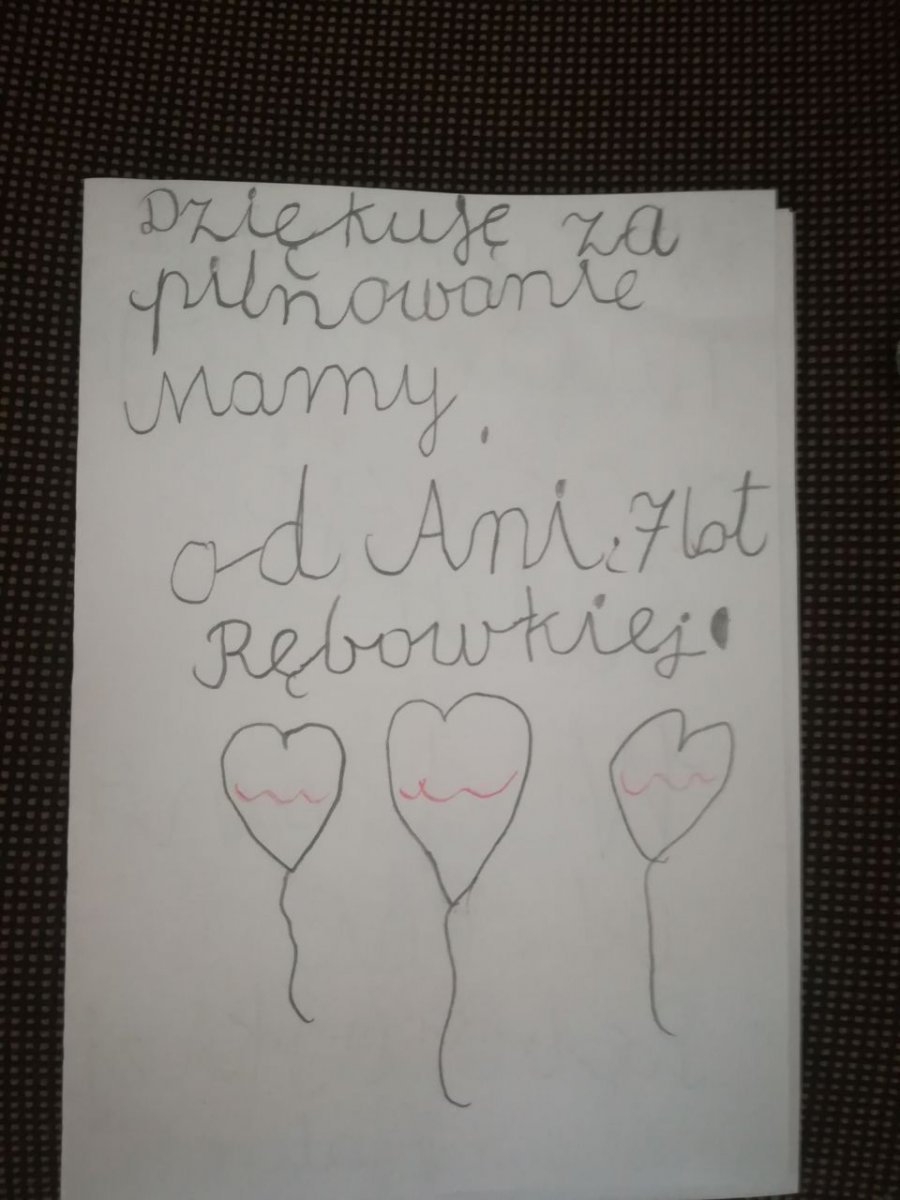 Dziękuję za
pilnowanie
Mamy.
od Ani. 7 lat
Rębowkiej.